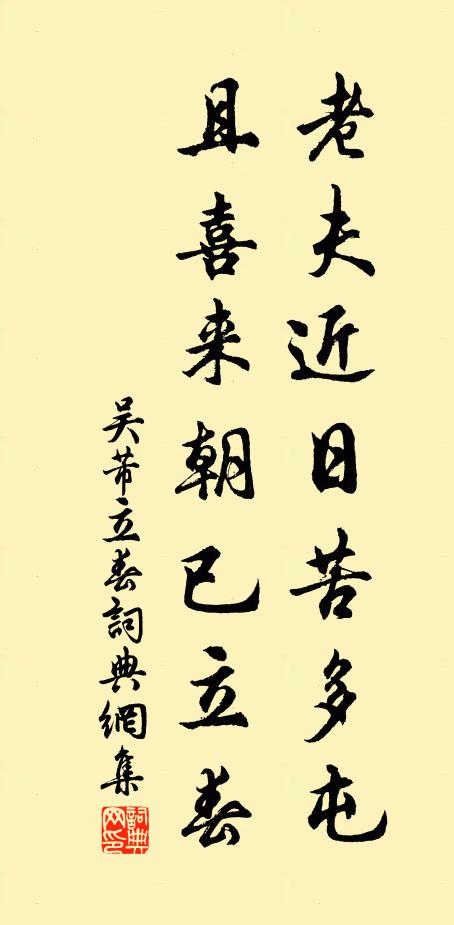 老夫近日苦多屯
且喜来朝已立春
吴芾立春詞典網集
詞典網印